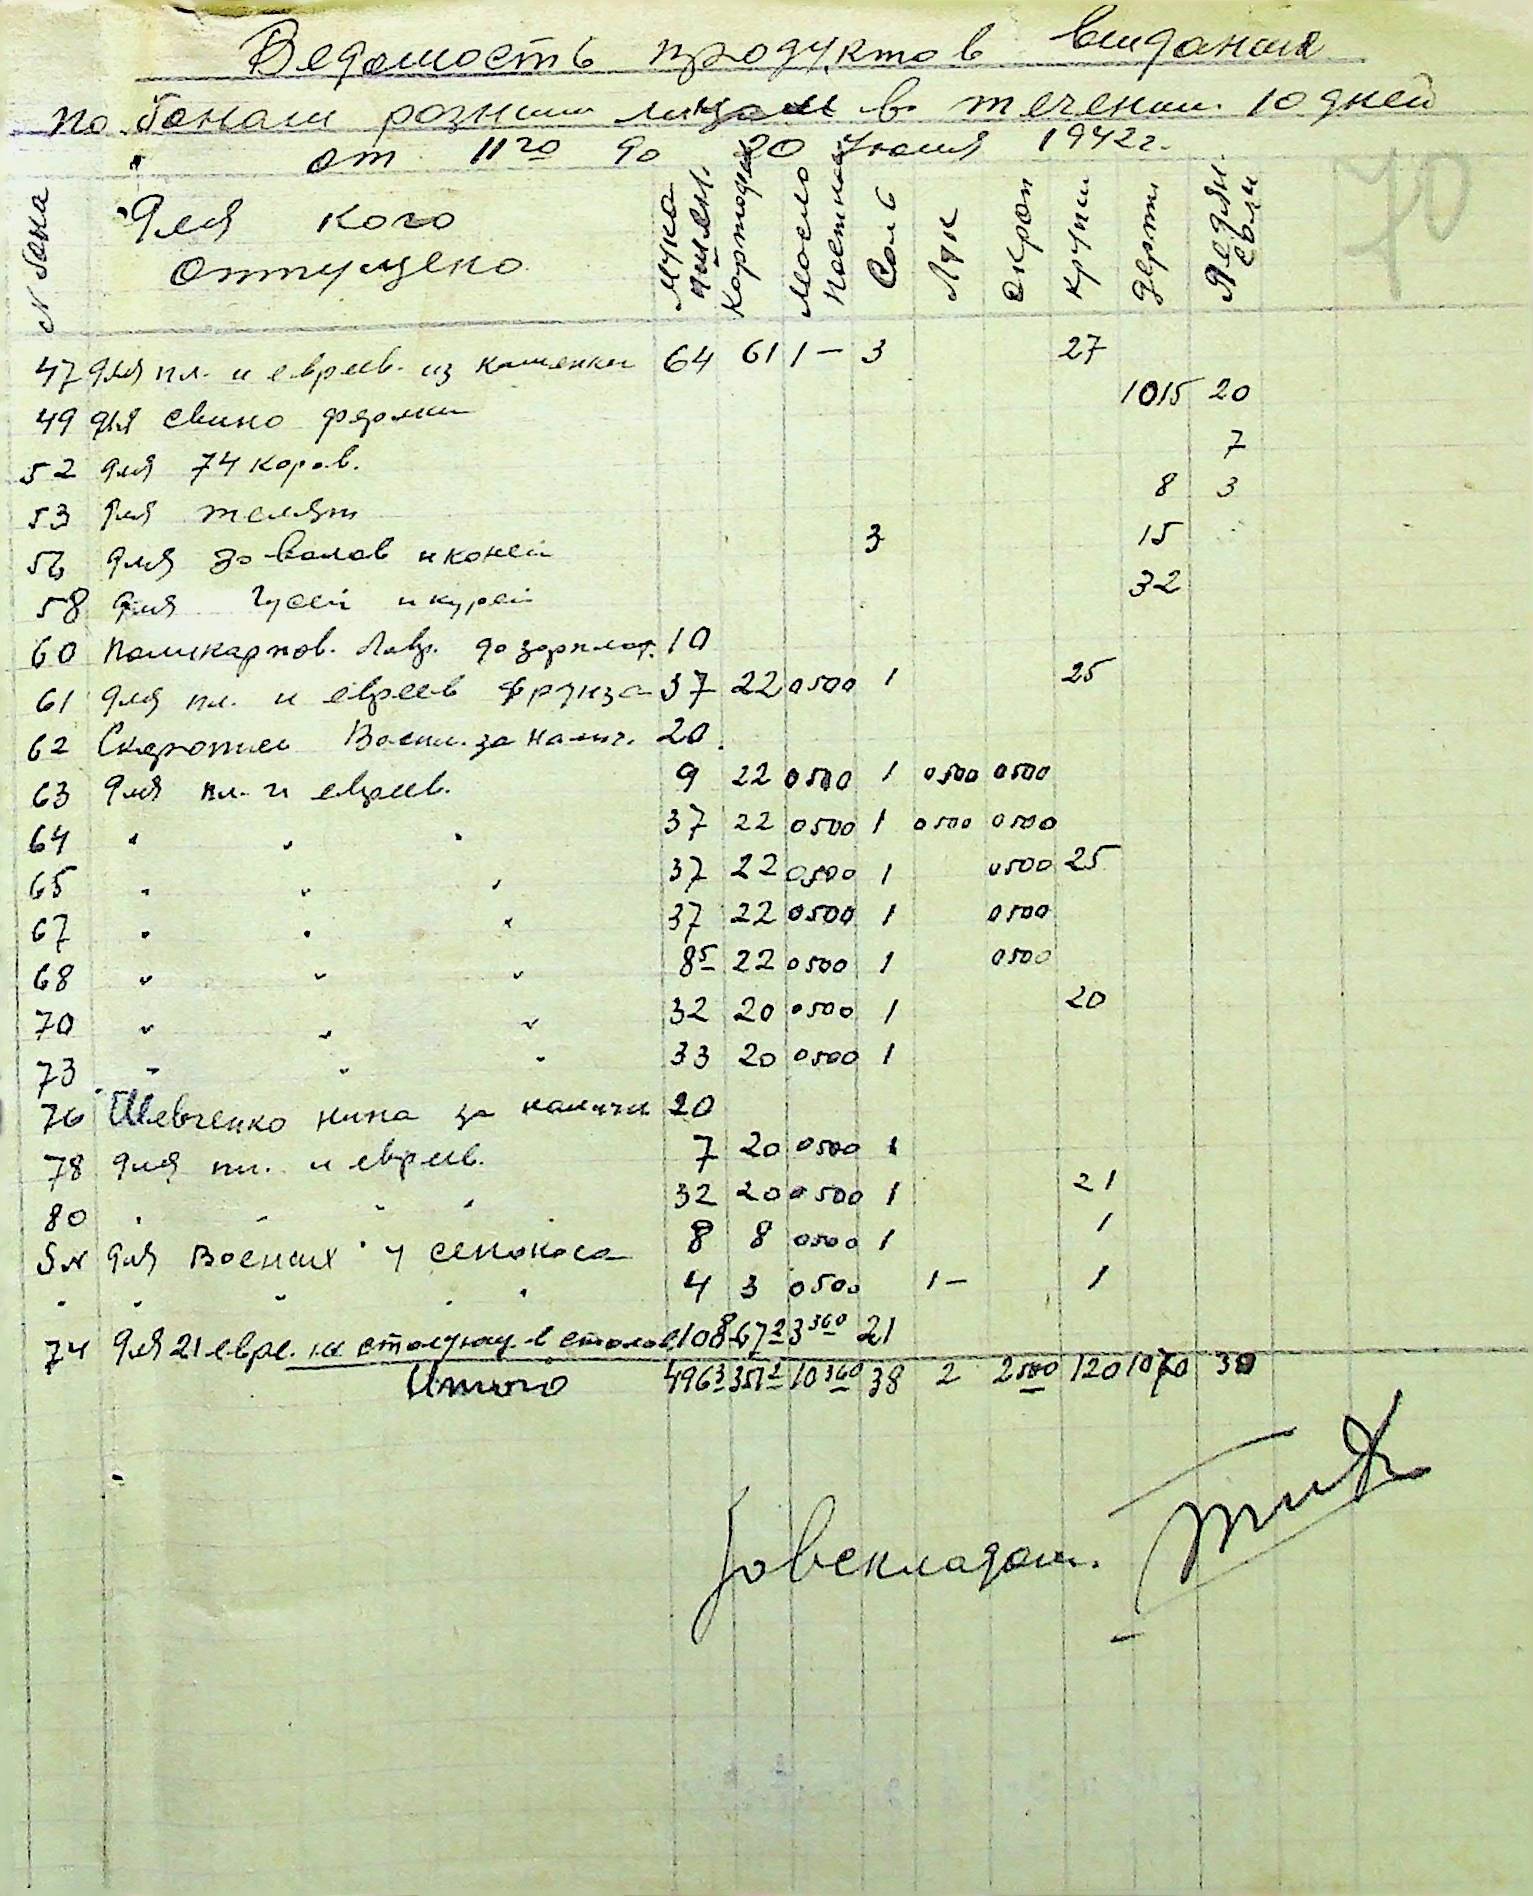 Ведомость продуктов выданих
по бонам розним лицам в течении 10 дней
от 11го до 20 Июля 1942г.
70
N бона
Для кого отпущено
Мука ячмен.
Картофель
Масло постное
Соль
Лук
Окроп
Крупи
Дерти
Ледян соли
47 для пл. и евреев. из каменки 64 61 1 – 3 27
49 для свино ферми 1015 20
52 для 74 коров. 7
53 для телят 8 3
56 для волов и коней 3 15
58 для гусей и курей 32
60 Поликарпов. до зарплат. 10
61 для пл. и евреев Фрунза 37 22 0500 1 25
62 за налич. 20
63 для пл. и евреев. 9 22 0500 1 0500 0500
64 " " " 37 22 0500 1 0500 0500
65 " " " 37 22 0500 1 0500 25
67 " " " 37 22 0500 1 0500
68 " " " 85 22 0500 1 0500
70 " " " 32 20 0500 1 20
73 " " " 33 20 0500 1
76 Шевченко нина за наличн 20
78 для пл. и евреев. 7 20 0500 1
80 " " " " 32 20 0500 1 21
для Воених у сенокоса 8 8 0500 1 1
" " " " " 4 3 0500 1 – 1
74 для 21 евре. в столов 108 672 3360 21
Итого 4963 3512 10360 38 2 2500 120 1070 30
Завскладом.